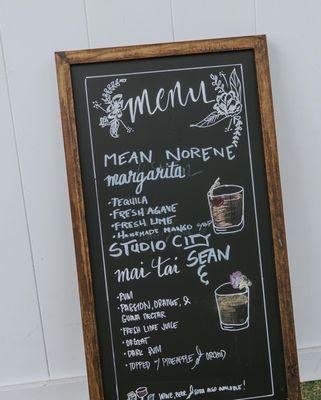 menu
MEAN NORENE
margarita
·TEQUILA
·FRESH AGAVE
·FRESH LIME
·HOMEMADE MANGO
STUDIO CITY
mai tai SEAN
&
·RUM
·PASSION, ORANGE, &
GUAVA NECTAR
·FRESH LIME JUICE
·ORGEAT
·DARK RUM
·TOPPED w/ PINEAPPLE & ORCHID
WINE, BEER, & SODA ALSO AVAILABLE!